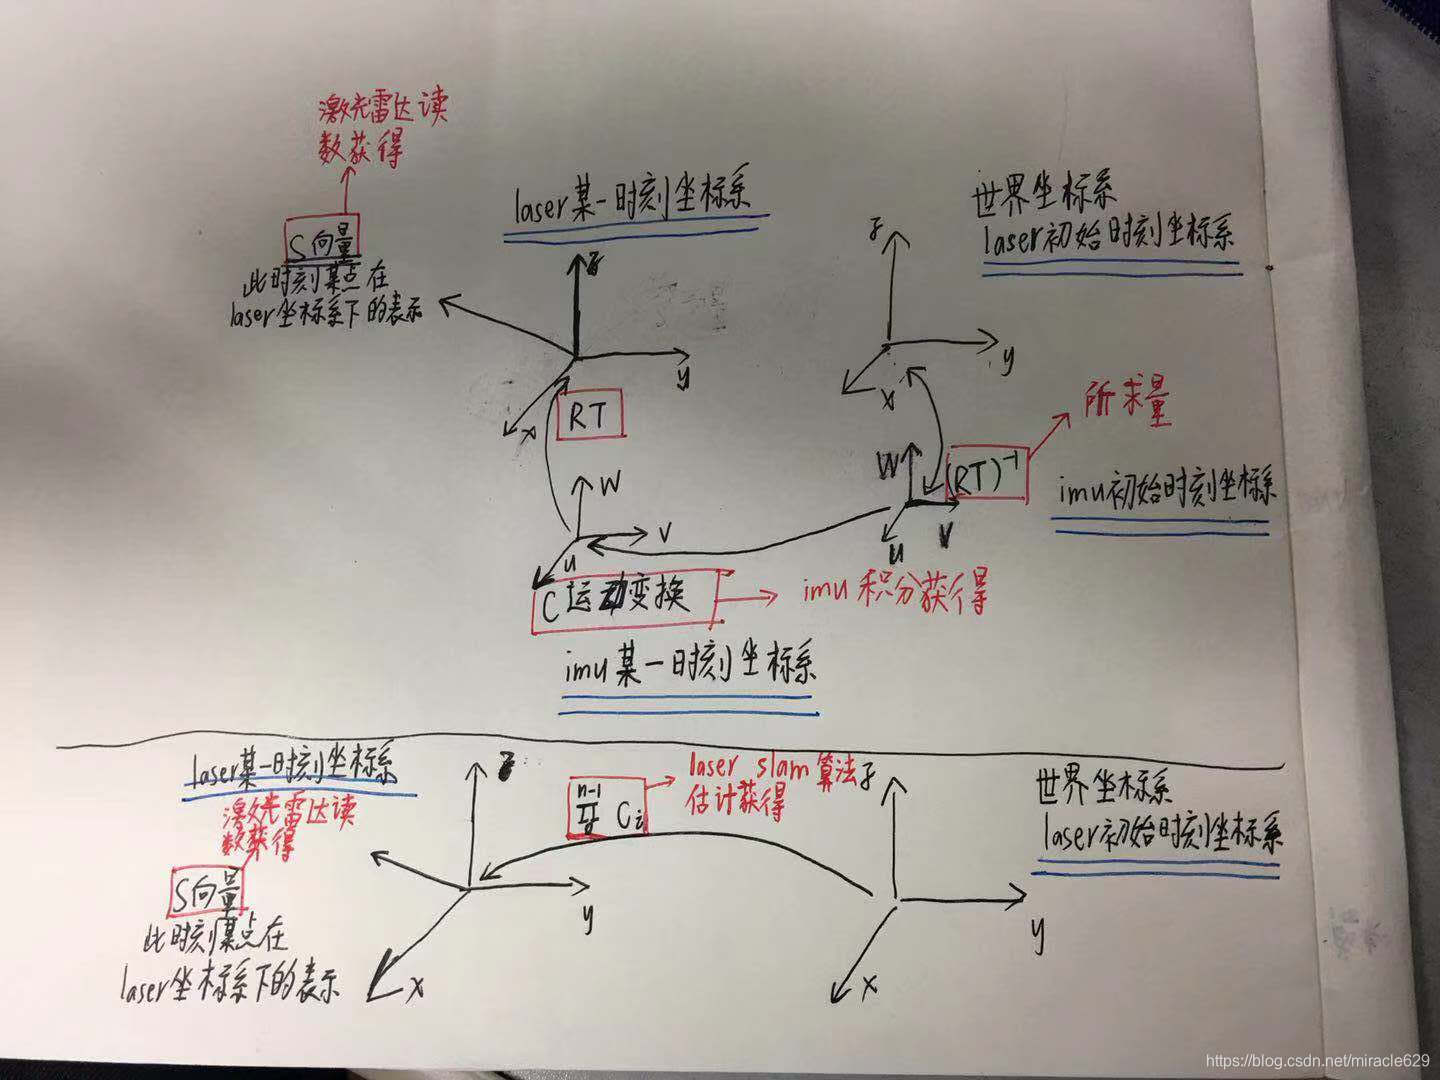 激光雷达读
数获得
S向量
此时刻某点在
laser坐标系下的表示
laser某一时刻坐标系
z
y
x
RT
W
V
u
C运动变换
imu积分获得
imu某一时刻坐标系
世界坐标系
laser初始时刻坐标系
z
y
x
W
V
u
(RT)⁻¹
所求量
imu初始时刻坐标系
laser某一时刻坐标系
激光雷达读
数获得
S向量
此时刻某点在
laser坐标系下的表示
z
y
x
n-1
Ci
laser slam算法
估计获得
z
y
x
世界坐标系
laser初始时刻坐标系
https://blog.csdn.net/miracle629